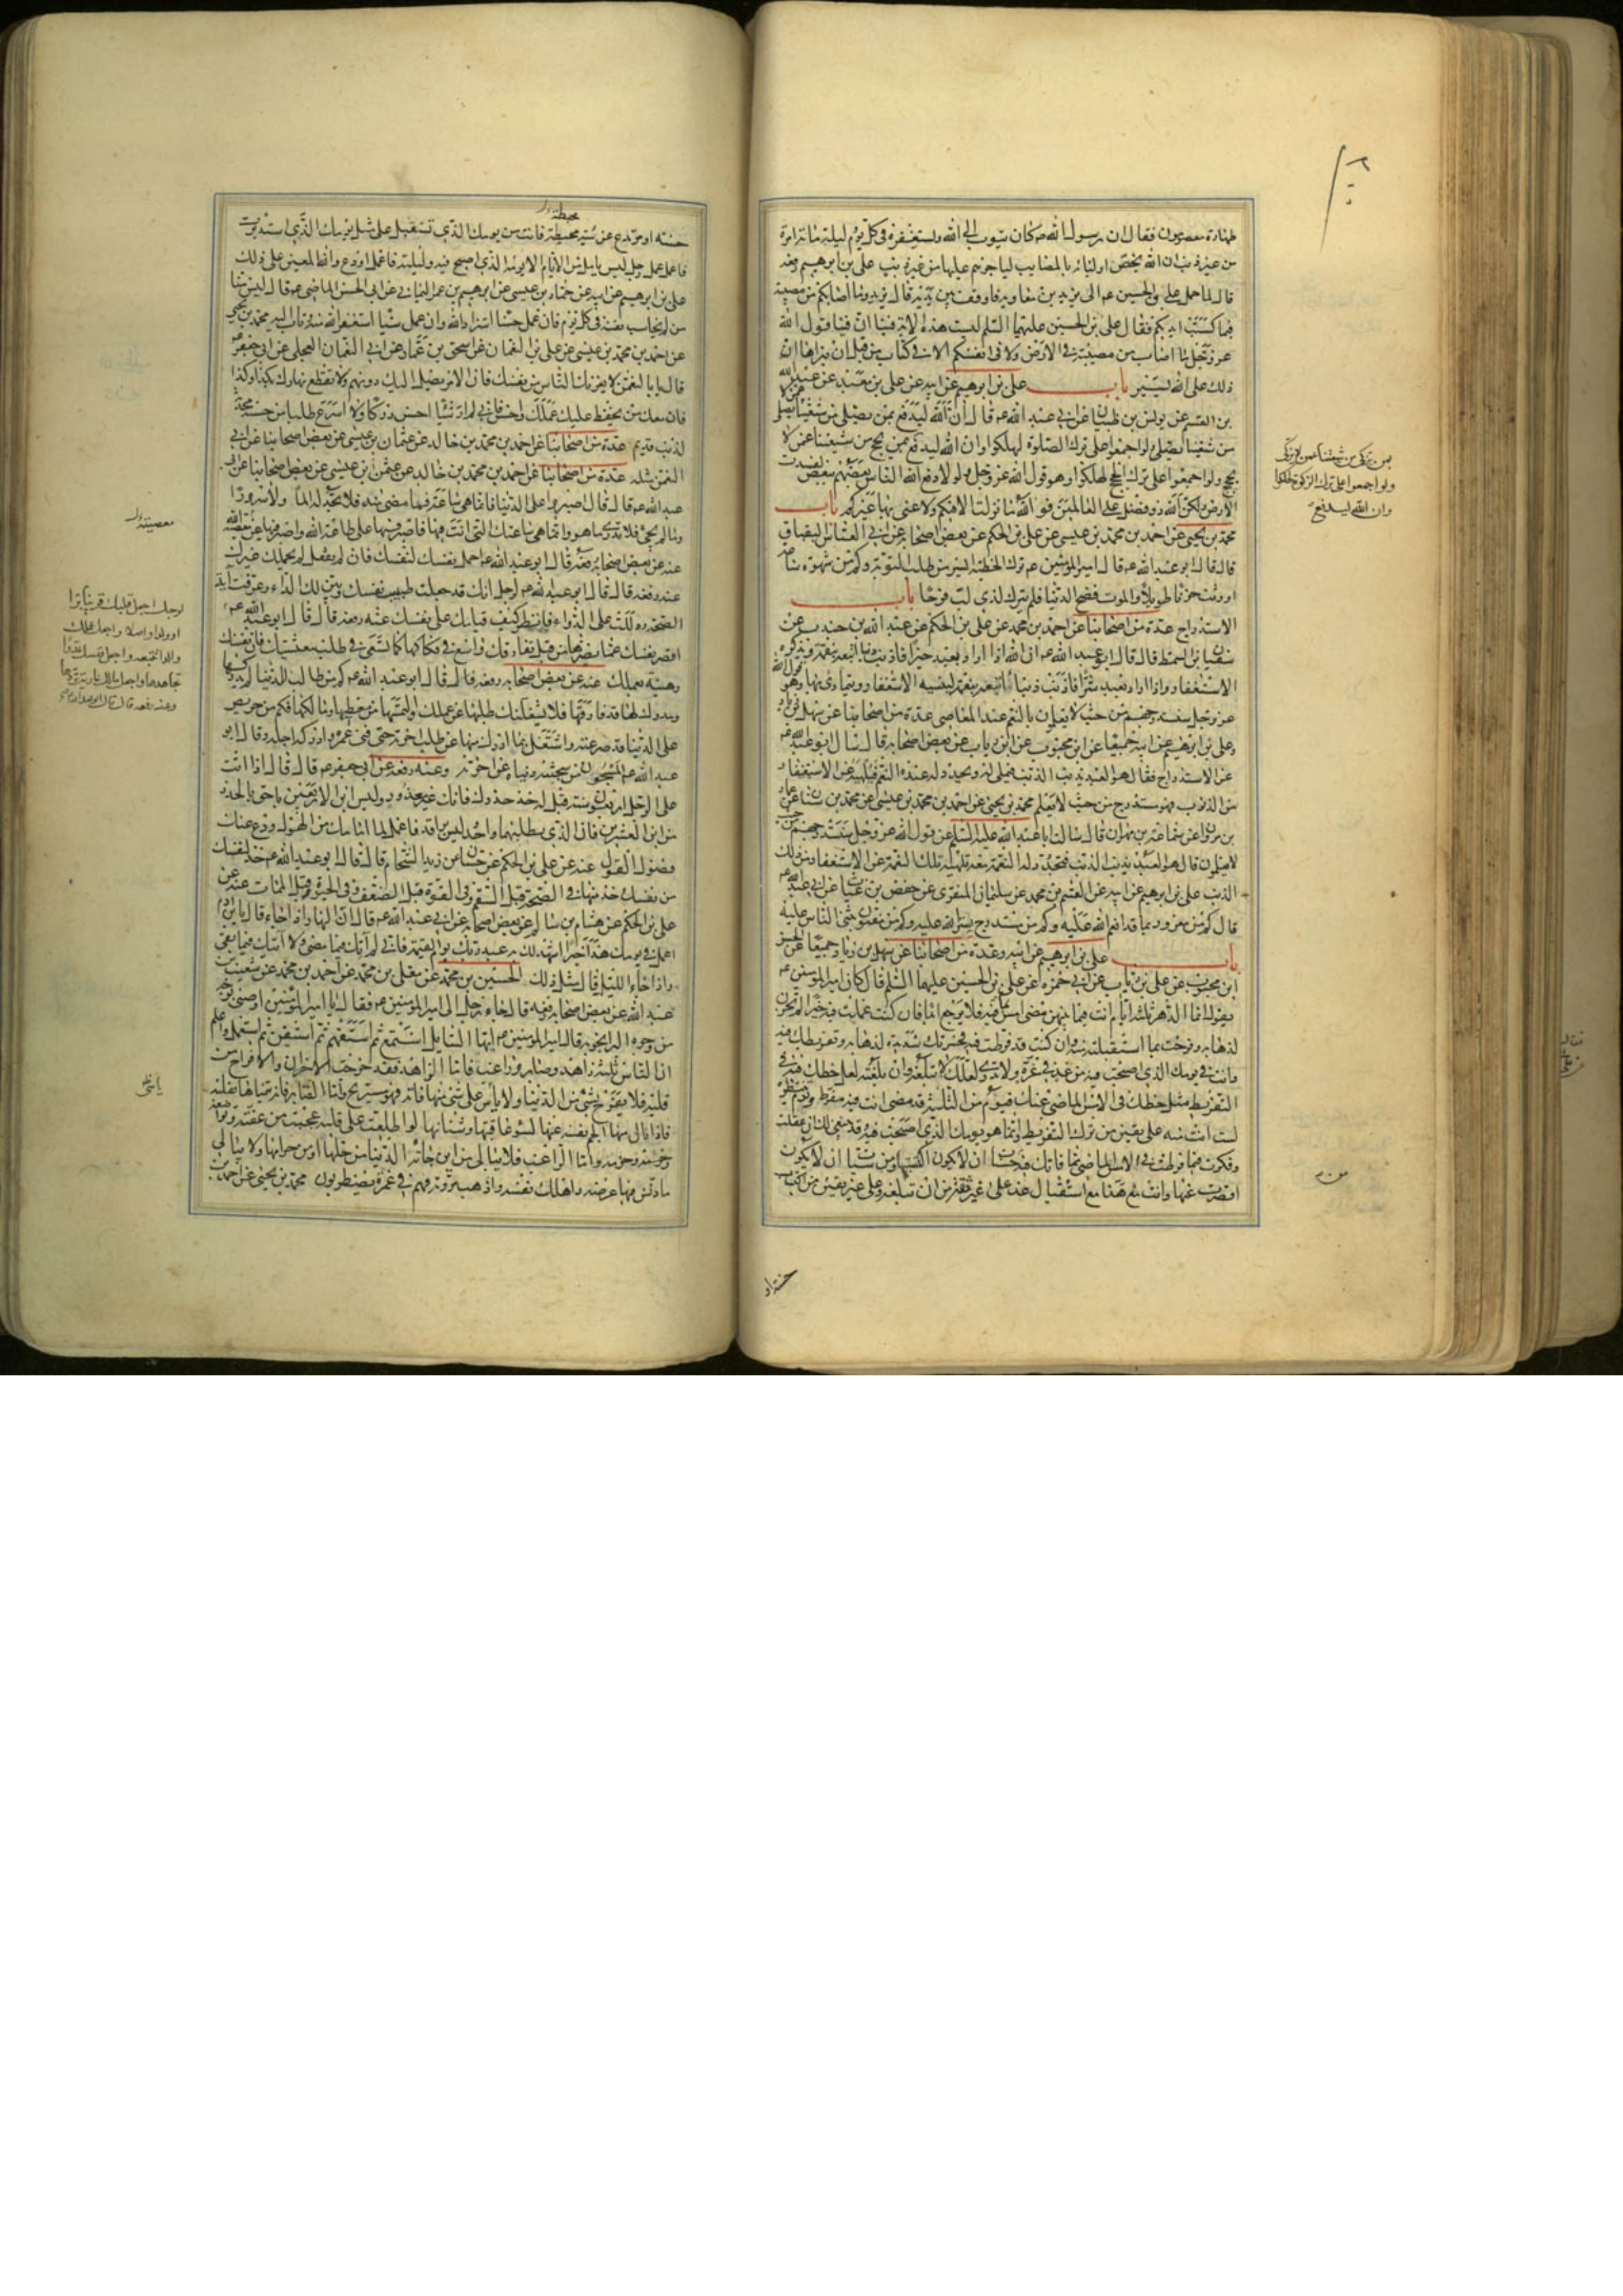 طهارة معصومون فقال ان رسول الله ص كان يتوب الى الله ويستغفره فى كل يوم وليلة مائة مرة
من غير ذنب ان الله يخص اوليائه بالمصايب لياجرهم عليها من غير ذنب على بن ابرهيم رفعه
قال لما حمل على بن الحسين ع الى يزيد بن معاويه فاوقف بين يديه قال يزيد وما اصابكم من مصيبة
فبما كسبت ايديكم فقال على بن الحسين عليهما السلم ليست هذه الاية فينا ان فينا قول الله
عز وجل ما اصاب من مصيبة فى الارض ولا فى انفسكم الا فى كتاب من قبل ان نبراها ان
ذلك على الله يسير باب على بن ابرهيم عن ابيه عن على بن معبد عن عبد الله
بن القسم عن يونس بن ظبيان عن ابى عبد الله ع قال ان الله ليدفع بمن يصلى من شيعتنا عمن لا يصلى
من شيعتنا ولو اجمعوا على ترك الصلوة لهلكوا وان الله ليدفع بمن يحج من شيعتنا عمن لا
يحج ولو اجمعوا على ترك الحج لهلكوا وهو قول الله عز وجل ولولا دفع الله الناس بعضهم ببعض لفسدت
الارض ولكن الله ذو فضل على العالمين فو الله ما نزلت الا فيكم ولا عنى بها غيركم باب
محمد بن يحيى عن احمد بن محمد بن عيسى عن على بن الحكم عن بعض اصحابه عن ابى العباس البقباق
قال قال ابو عبد الله ع قال امير المؤمنين ع ترك الخطيئة ايسر من طلب التوبة وكم من شهوة ساعة
اورثت حزنا طويلا والموت فضح الدنيا فلم يترك لذى لب فرحا باب
الاستدراج عدة من اصحابنا عن احمد بن محمد عن على بن الحكم عن عبد الله بن جندب عن
سفيان بن السمط قال قال ابو عبد الله ع ان الله اذا اراد بعبد خيرا فاذنب ذنبا اتبعه بنقمة ويذكره
الاستغفار واذا اراد بعبد شرا فاذنب ذنبا اتبعه بنعمة لينسيه الاستغفار ويتمادى بها وهو قول الله
عز وجل سنستدرجهم من حيث لا يعلمون بالنعم عند المعاصى عدة من اصحابنا عن سهل بن زياد
وعلى بن ابرهيم عن ابيه جميعا عن ابن محبوب عن ابن رياب عن بعض اصحابه قال سال ابو عبد الله ع
عن الاستدراج فقال هو العبد يذنب الذنب فيملى له ويجدد له عنده النعم فيلهيه عن الاستغفار
من الذنوب فهو مستدرج من حيث لا يعلم محمد بن يحيى عن احمد بن محمد بن عيسى عن محمد بن سنان عن عمار
بن مروان عن سماعة بن مهران قال سالت ابا عبد الله عليه السلم عن قول الله عز وجل سنستدرجهم من حيث
لا يعلمون قال هو العبد يذنب الذنب فتجدد له النعمة معه تلهيه تلك النعمة عن الاستغفار من ذلك
الذنب على بن ابرهيم عن ابيه عن القسم بن محمد عن سليمان المنقرى عن حفص بن غياث عن ابى عبد الله ع
قال كم من مغرور بما قد انعم الله عليه وكم من مستدرج بستر الله عليه وكم من مفتون بثنى الناس عليه
باب على بن ابرهيم عن ابيه وعدة من اصحابنا عن سهل بن زياد جميعا عن الحسن
ابن محبوب عن على بن رياب عن ابى حمزة عن على بن الحسين عليهما السلم قال كان امير المؤمنين ع
يقول انما الدهر ثلثة ايام انت فيما بينهن مضى امس بما فيه فلا يرجع ابدا فان كنت عملت فيه خيرا لم تحزن
لذهابه وفرحت بما استقبلته منه وان كنت قد فرطت فيه فحسرتك شديدة لذهابه وتفريطك فيه
وانت فى يومك الذى اصبحت فيه من غد فى غرة ولا تدرى لعلك لا تبلغه وان بلغته لعل حظك فيه فى
التفريط مثل حظك فى الامس الماضى عنك فيوم من الثلثة قد مضى انت فيه مفرط ويوم تنتظره
لست انت منه على يقين من ترك التفريط وانما هو يومك الذى اصبحت فيه وقد ينبغى لك ان عقلت
وفكرت فيما فرطت فى الامس الماضى مما فاتك فيه من حسنات ان لا تكون اكتسبتها ومن سيئات ان لا تكون
اقصرت عنها وانت مع هذا مع استقبال غد على غير ثقة من ان تبلغه وعلى غير يقين من اكتساب
بمن يزكى من شيعتنا عمن لا يزكى
ولو اجمعوا على ترك الزكوة لهلكوا
وان الله ليدفع
حسنة او مرتدع عن سيئة محبطة فانت من يومك الذى تستقبل على مثل يومك الذى استدبرت
فاعمل عمل رجل ليس يامل من الايام الا يومه الذى اصبح فيه وليلته فاعمل او دع والله المعين على ذلك
على بن ابرهيم عن ابيه عن حماد بن عيسى عن ابرهيم بن عمر اليمانى عن ابى الحسن الماضى ع قال ليس منا
من لم يحاسب نفسه فى كل يوم فان عمل حسنا استزاد الله وان عمل سيئا استغفر الله منه وتاب اليه محمد بن يحيى
عن احمد بن محمد بن عيسى عن على بن النعمان عن اسحق بن عمار عن ابى النعمان العجلى عن ابى جعفر ع
قال يا با النعمن لا يغرنك الناس من نفسك فان الامر يصل اليك دونهم ولا تقطع نهارك بكذا وكذا
فان معك من يحفظ عليك عملك واحسن فانى لم ار شيئا احسن دركا ولا اسرع طلبا من حسنة محدثة
لذنب قديم عدة من اصحابنا عن احمد بن محمد بن خالد عن عثمان بن عيسى عن بعض اصحابنا عن ابى
النعمن مثله عدة من اصحابنا عن احمد بن محمد بن خالد عن عثمن بن عيسى عن بعض اصحابنا عن ابى
عبد الله ع قال قال اصبروا على الدنيا فانما هى ساعة فما مضى منه فلا تجد له الما ولا سرورا
وما لم يجئ فلا تدرى ما هو وانما هى ساعتك التى انت فيها فاصبر فيها على طاعة الله واصبر فيها عن معصية الله
عنه عن بعض اصحابه رفعه قال قال ابو عبد الله ع احمل نفسك لنفسك فان لم تفعل لم يحملك غيرك
عنه رفعه قال قال ابو عبد الله ع لرجل انك قد جعلت طبيب نفسك وبين لك الداء وعرفت اية
الصحة ودللت على الدواء فانظر كيف قيامك على نفسك عنه رفعه قال قال ابو عبد الله ع
اقصر نفسك عما يضرها من قبل ان تفارقك واسع فى فكاكها كما تسعى فى طلب معيشتك فان نفسك
رهينة بعملك عنه عن بعض اصحابه رفعه قال قال ابو عبد الله ع كم من طالب للدنيا لم يدركها
ومدرك لها قد فارقها فلا يشغلنك طلبها عن عملك والتمسها من معطيها ومالكها فكم من حريص
على الدنيا قد صرعته واشتغل بما ادرك منها عن طلب اخرته حتى فنى عمره وادركه اجله وقال ابو
عبد الله ع المسجون من سجنته دنياه عن اخرته وعنه رفعه عن ابى جعفر ع قال قال اذا اتت
على الرجل اربعون سنة قيل له خذ حذرك فانك غير معذور وليس ابن الاربعين باحق بالحذر
من ابن العشرين فان الذى يطلبهما واحد ليس براقد فاعمل لما امامك من الهول ودع عنك
فضول القول عنه عن على بن الحكم عن حسان عن زيد الشحام قال قال ابو عبد الله ع خذ لنفسك
من نفسك خذ منها فى الصحة قبل السقم وفى القوة قبل الضعف وفى الحيوة قبل الممات عنه عن
على بن الحكم عن هشام بن سالم عن بعض اصحابه عن ابى عبد الله ع قال ان النهار اذا جاء قال يا بن ادم
اعمل فى يومك هذا خيرا اشهد لك به عند ربك يوم القيمة فانى لم اتك فيما مضى ولا اتيك فيما بقى
واذا جاء الليل قال مثل ذلك الحسين بن محمد عن معلى بن محمد عن احمد بن محمد عن شعيب بن
عبد الله عن بعض اصحابه رفعه قال جاء رجل الى امير المؤمنين ع فقال يا امير المؤمنين اوصنى بوجه
من وجوه البر انجو به قال امير المؤمنين ع ايها السايل استمع ثم استفهم ثم استيقن ثم استعمل واعلم
ان الناس ثلثة زاهد وصابر وراغب فاما الزاهد فقد خرجت الاحزان والافراح من
قلبه فلا يفرح بشئ من الدنيا ولا ياس على شئ منها فاته فهو مستريح واما الصابر فانه يتمناها بقلبه
فاذا نال منها الجم نفسه عنها لسوء عاقبتها وشنانها لو اطلعت على قلبه عجبت من عفته وتواضعه
وحزمه واما الراغب فلا يبالى من اين جائته الدنيا من حلها او من حرامها ولا يبالى
ما دنس فيها عرضه واهلك نفسه واذهب مروته فهم فى غمرة يضطربون محمد بن يحيى عن احمد بن
معصيته
لرجل اجعل قلبك قرينا برا
او ولدا واصلا واجعل عملك
والدا تتبعه واجعل نفسك عدوا
تجاهدها واجعل مالك عارية تردها
وعنه رفعه قال قال ابو عبد الله ع